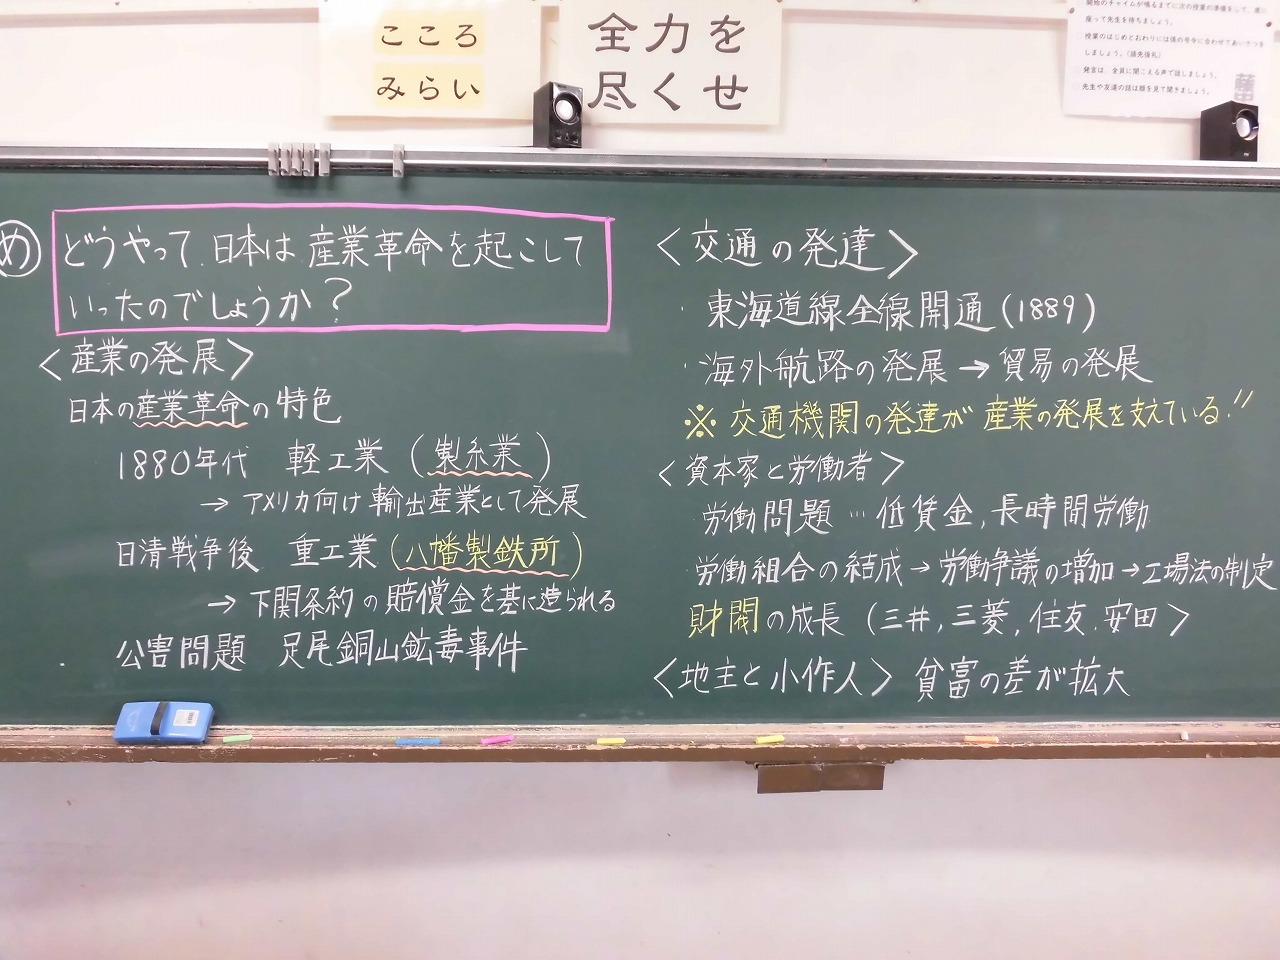 こころ
みらい
全力を
尽くせ
開始のチャイムが鳴るまでに次の授業の準備をして、席に
座って先生を待ちましょう。
授業のはじめとおわりには係の号令に合わせてあいさつを
しましょう。(語先後礼)
発言は、全員に聞こえる声で話しましょう。
先生や友達の話は顔を見て聞きましょう。
め
どうやって、日本は産業革命を起こして
いったのでしょうか?
<産業の発展>
日本の産業革命の特色
1880年代 軽工業(製糸業)
→アメリカ向け輸出産業として発展
日清戦争後 重工業(八幡製鉄所)
→下関条約の賠償金を基に造られる
公害問題 足尾銅山鉱毒事件
<交通の発達>
・東海道線全線開通(1889)
・海外航路の発展→貿易の発展
※交通機関の発達が産業の発展を支えている!!
<資本家と労働者>
労働問題…低賃金,長時間労働
労働組合の結成→労働争議の増加→工場法の制定
財閥の成長(三井,三菱,住友,安田>
<地主と小作人>貧富の差が拡大